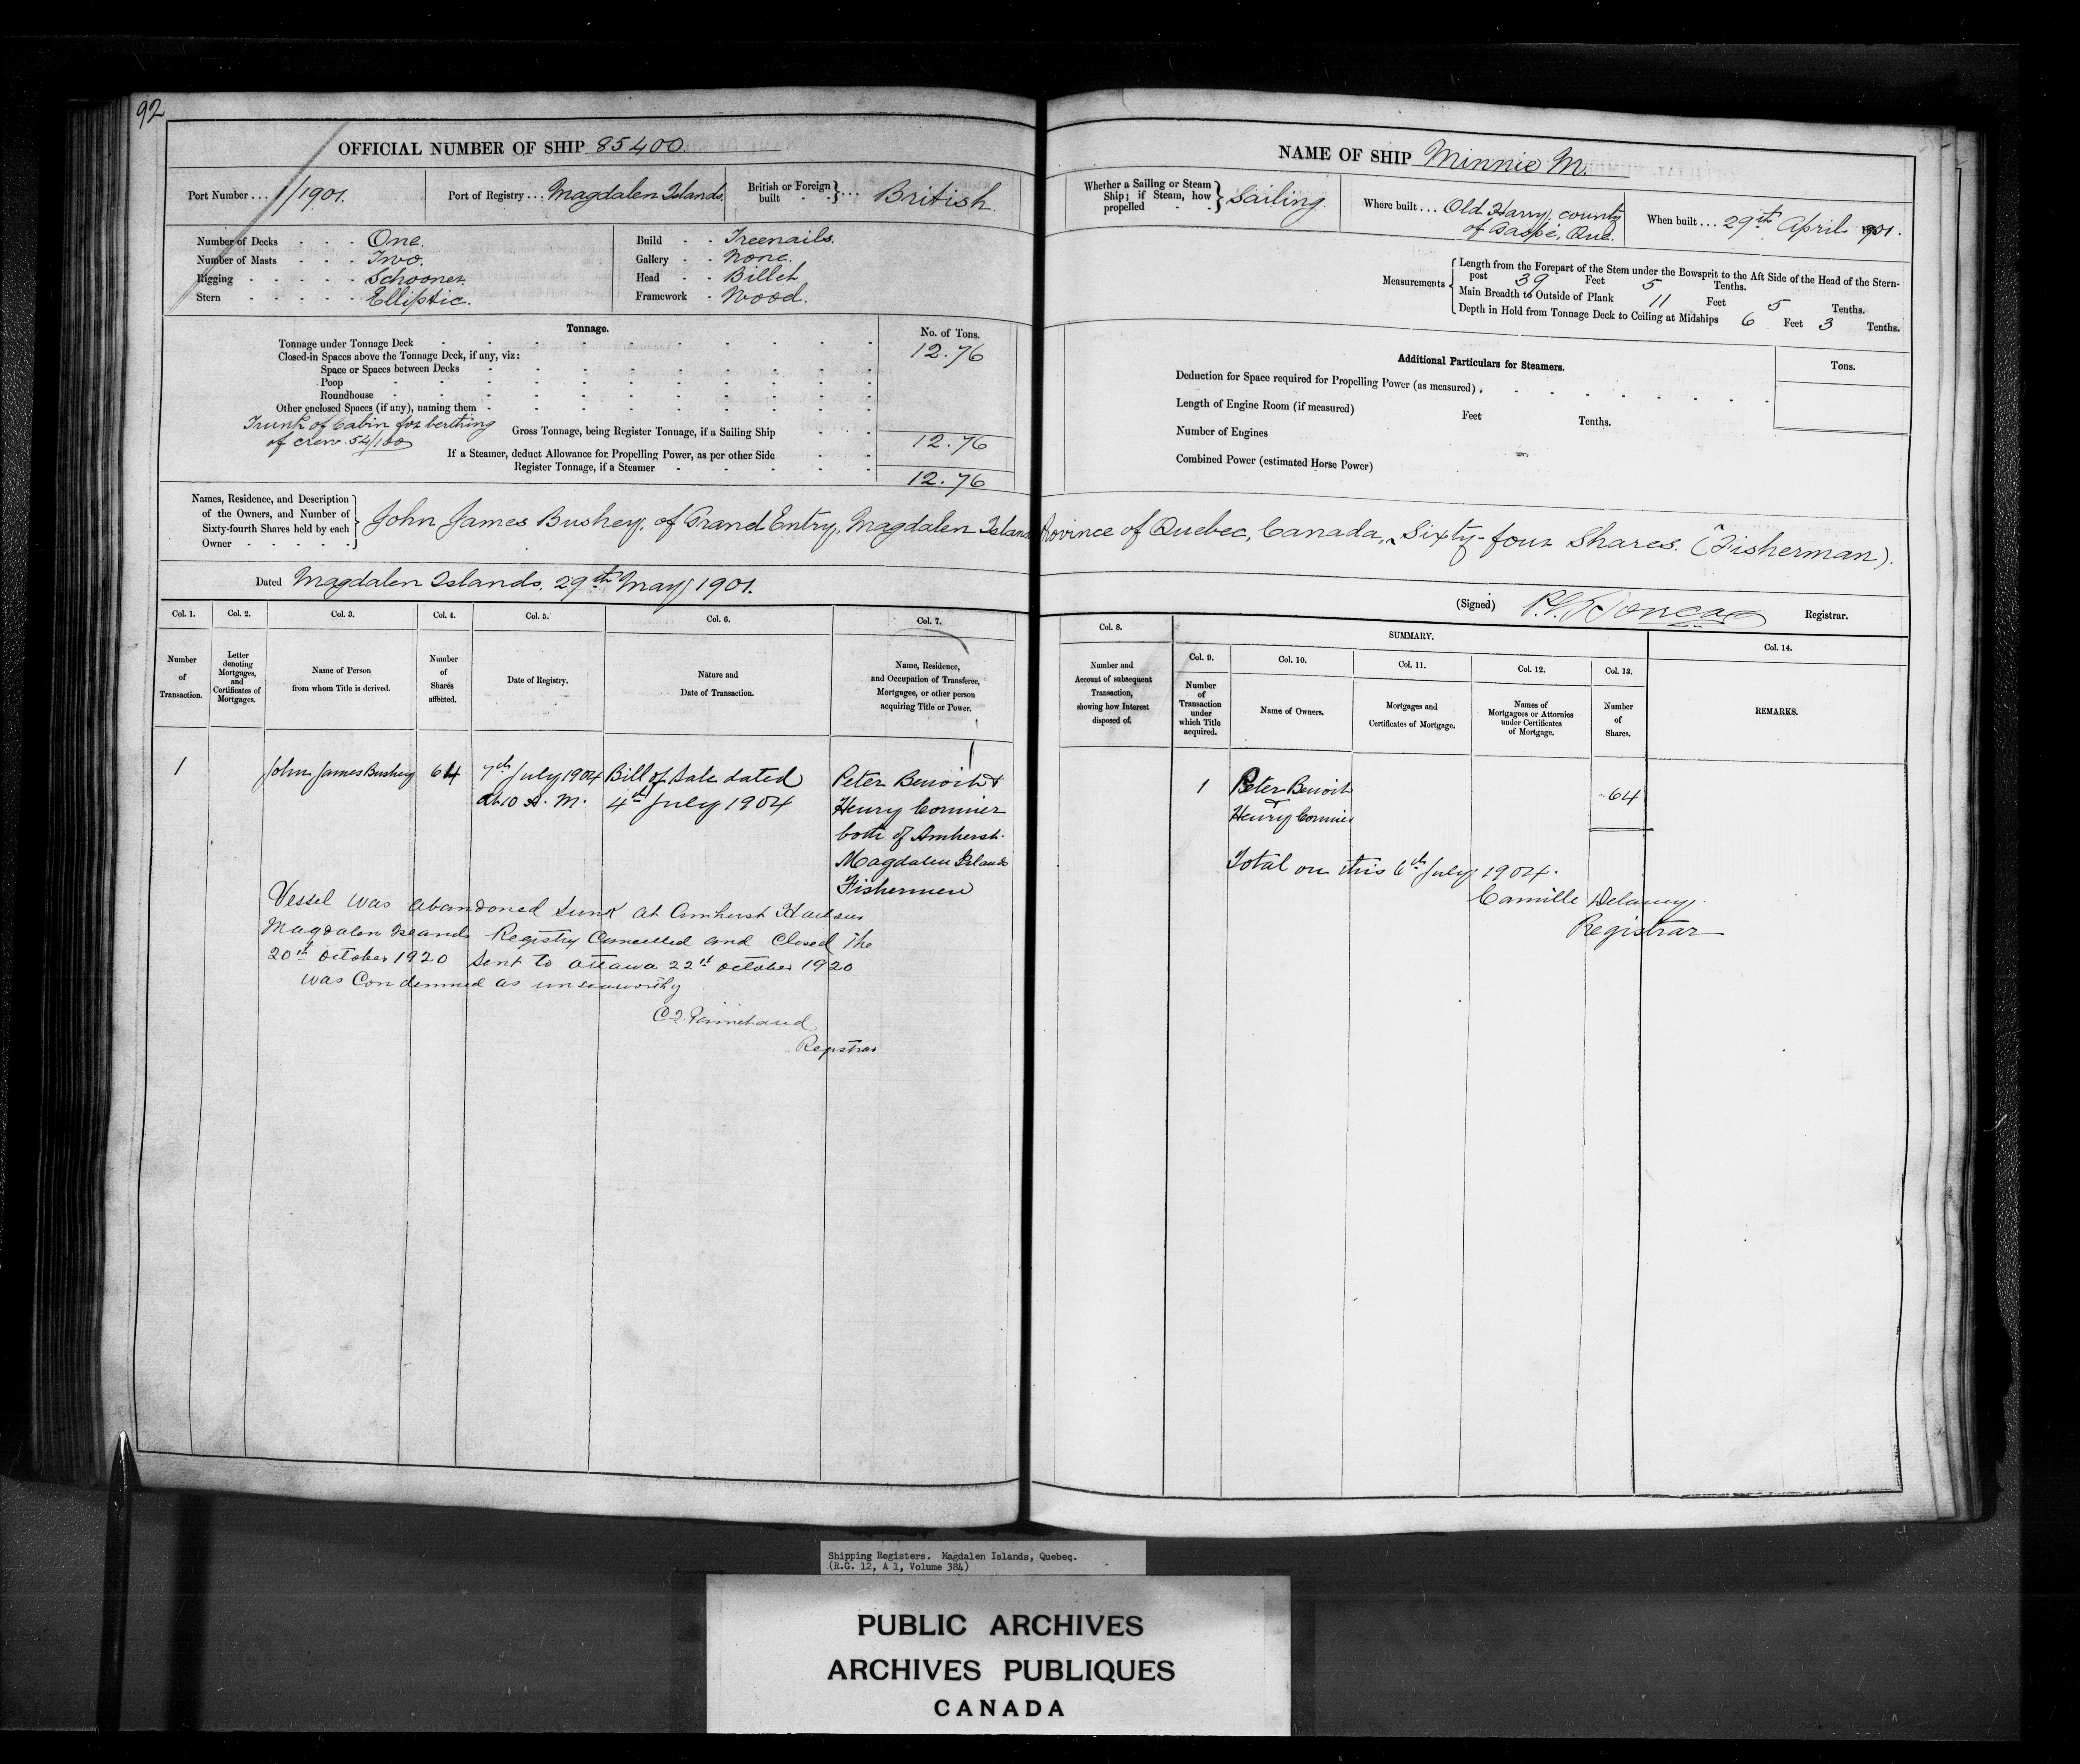 92
OFFICIAL NUMBER OF SHIP 85400.
Port Number ... 1/1901. Port of Registry ... Magdalen Islands. British or Foreign built - - } ... British.
Number of Decks - - - One.
Number of Masts - - - Two.
Rigging - - - - - Schooner.
Stern - - - - - Elliptic.
Build - - Treenails.
Gallery - - None.
Head - - Billet.
Framework - Wood.
Tonnage.
No. of Tons.
Tonnage under Tonnage Deck 12.76
Closed-in Spaces above the Tonnage Deck, if any, viz:
Space or Spaces between Decks
Poop
Roundhouse
Other enclosed Spaces (if any), naming them
Trunk of Cabin for berthing
of crew. 54/100
Gross Tonnage, being Register Tonnage, if a Sailing Ship 12.76
If a Steamer, deduct Allowance for Propelling Power, as per other Side
Register Tonnage, if a Steamer 12.76
Names, Residence, and Description
of the Owners, and Number of
Sixty-fourth Shares held by each
Owner
John James Bushey, of Grand Entry, Magdalen Island Province of Quebec, Canada, Sixty-four Shares. (Fisherman).
Dated Magdalen Islands. 29th May, 1901.
Col. 1. Col. 2. Col. 3. Col. 4. Col. 5. Col. 6. Col. 7.
Number of Transaction.
Letter denoting Mortgages, and Certificates of Mortgages.
Name of Person from whom Title is derived.
Number of Shares affected.
Date of Registry.
Nature and Date of Transaction.
Name, Residence, and Occupation of Transferee, Mortgagee, or other person acquiring Title or Power.
1 John James Bushey 64 7th July 1904 Bill of Sale dated Peter Benoit &
at 10 A. M. 4th July 1904 Henry Cormier
both of Amherst.
Magdalen Islands
Fishermen
Vessel was abandoned sunk at Amherst Harbour
Magdalen Islands Registry Cancelled and Closed the
20th October 1920 Sent to Ottawa 22nd October 1920
was Condemned as unseaworthy
Registrar
NAME OF SHIP Minnie M.
Whether a Sailing or Steam Ship; if Steam, how propelled - - } Sailing.
Where built ... Old Harry, county
of Gaspé, Que.
When built ... 29th April 1901.
Measurements
Length from the Forepart of the Stem under the Bowsprit to the Aft Side of the Head of the Stern-
post 39 Feet 5 Tenths.
Main Breadth to Outside of Plank 11 Feet 5 Tenths.
Depth in Hold from Tonnage Deck to Ceiling at Midships 6 Feet 3 Tenths.
Additional Particulars for Steamers.
Tons.
Deduction for Space required for Propelling Power (as measured)
Length of Engine Room (if measured) Feet Tenths.
Number of Engines
Combined Power (estimated Horse Power)
(Signed) Registrar.
SUMMARY.
Col. 8. Col. 9. Col. 10. Col. 11. Col. 12. Col. 13. Col. 14.
Number and Account of subsequent Transaction, showing how Interest disposed of.
Number of Transaction under which Title acquired.
Name of Owners.
Mortgages and Certificates of Mortgage.
Names of Mortgagees or Attornies under Certificates of Mortgage.
Number of Shares.
REMARKS.
1 Peter Benoit
& 64
Henry Cormier
Total on this 6th July, 1904.
Camille Delaney.
Registrar
Shipping Registers. Magdalen Islands, Quebec.
(R.G. 12, A 1, Volume 384)
PUBLIC ARCHIVES
ARCHIVES PUBLIQUES
CANADA